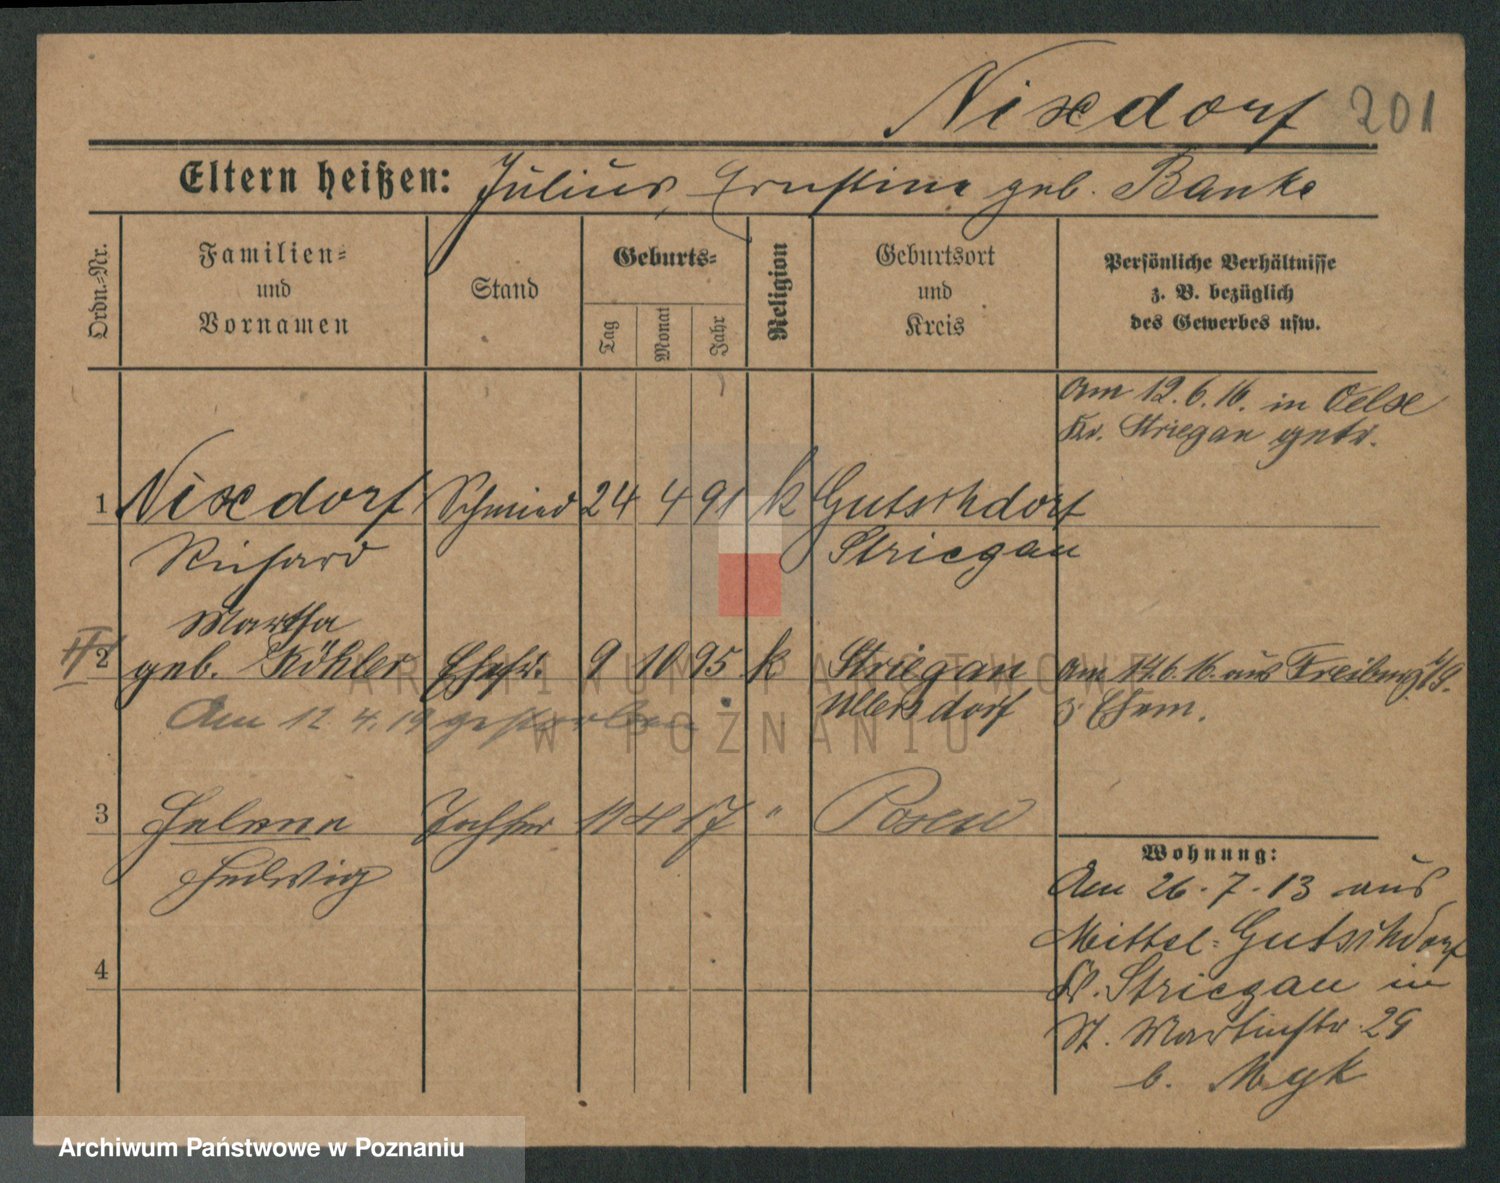 Nixdorf 201
Eltern heißen: Julius, Ernstine geb. Banke
Ordn.=Nr.
Familien=
und
Vornamen
Stand
Geburts=
Tag
Monat
Jahr
Religion
Geburtsort
und
Kreis
Persönliche Verhältnisse
z. B. bezüglich
des Gewerbes usw.
Am 12.6.16. in Oelse
Kr. Striegau getr.
1 Nixdorf Schmied 24 4 91 k Gutschdorf
Richard Striegau
Martha
II 2 geb. Köhler Ehefr. 9 10 95 k Striegau Am 14.6.16. aus Freiburg
Am 12 4. 19 gestorben Ullersdorf z. Ehem.
3 Helene Tochter 11 4 17 " Posen
Hedwig
4
Wohnung:
Am 26.7.13 aus
Mittel=Gutschdorf
Kr. Striegau in
St. Martinstr. 29
b.
ARCHIWUM PAŃSTWOWE
W POZNANIU
Archiwum Państwowe w Poznaniu